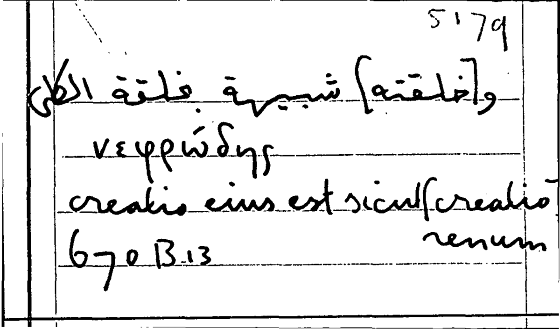 5179
و[خلقته] شبيهة بخلقة الكلى
νεφρώδης
creatio eius est sicut [creatio
renum
670 B 13